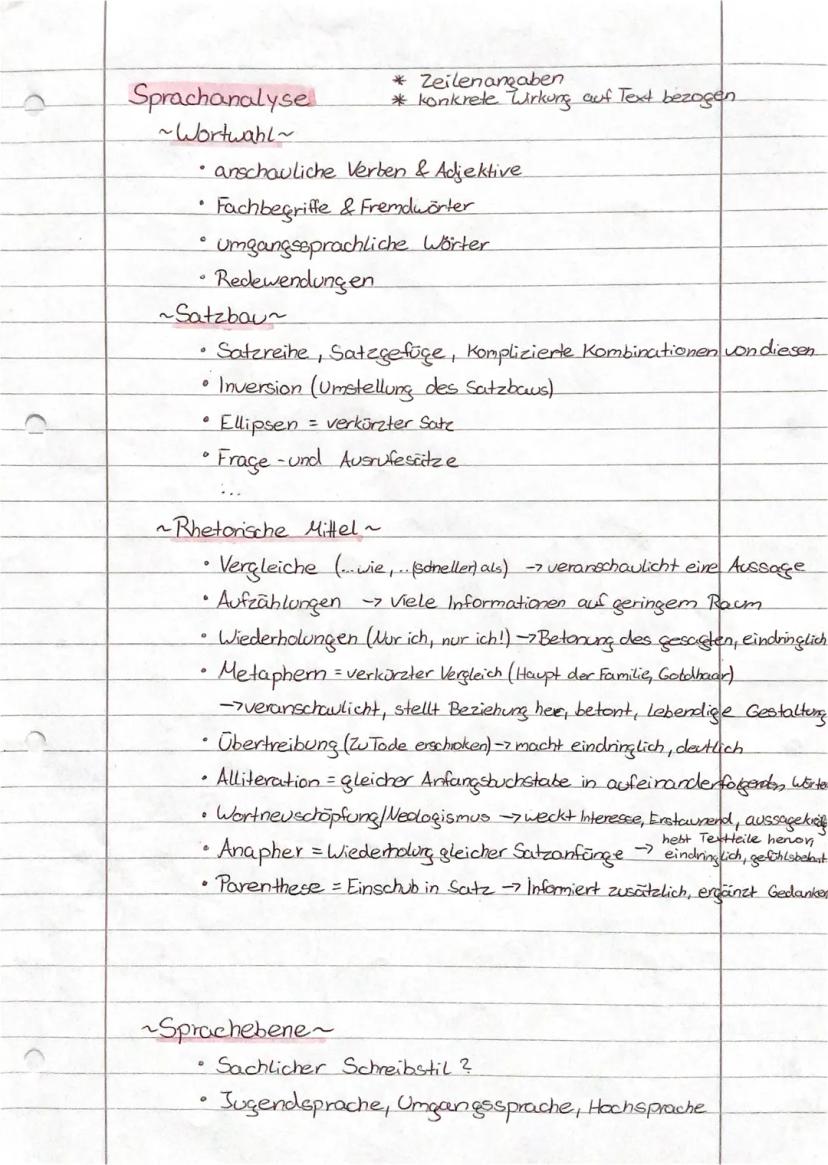 Sprachanalyse
* Zeilenangaben
* konkrete Wirkung auf Text bezogen
~Wortwahl~
• anschauliche Verben & Adjektive
• Fachbegriffe & Fremdwörter
• umgangssprachliche Wörter
• Redewendungen
~Satzbau~
• Satzreihe, Satzgefüge, Komplizierte Kombinationen von diesen
• Inversion (Umstellung des Satzbaus)
• Ellipsen = verkürzter Satz
• Frage- und Ausrufesätze
...
~Rhetorische Mittel~
• Vergleiche (...wie, ..(schneller) als) → veranschaulicht eine Aussage
• Aufzählungen → viele Informationen auf geringem Raum
• Wiederholungen (Nur ich, nur ich!) → Betonung des gesagten, eindringlich
• Metaphern = verkürzter Vergleich (Haupt der Familie, Goldhaar)
→ veranschaulicht, stellt Beziehung her, betont, lebendige Gestaltung
• Übertreibung (Zu Tode erschroken) → macht eindringlich, deutlich
• Alliteration = gleicher Anfangsbuchstabe in aufeinanderfolgenden Wörte
• Wortneuschöpfung/Neologismus → weckt Interesse, Erstaunend, aussagekräf
• Anapher = Wiederholung gleicher Satzanfänge → hebt Textteile hervor,
eindringlich, gefühlsbetont
• Parenthese = Einschub in Satz → Informiert zusätzlich, ergänzt Gedanken
~Sprachebene~
• Sachlicher Schreibstil?
• Jugendsprache, Umgangssprache, Hochsprache